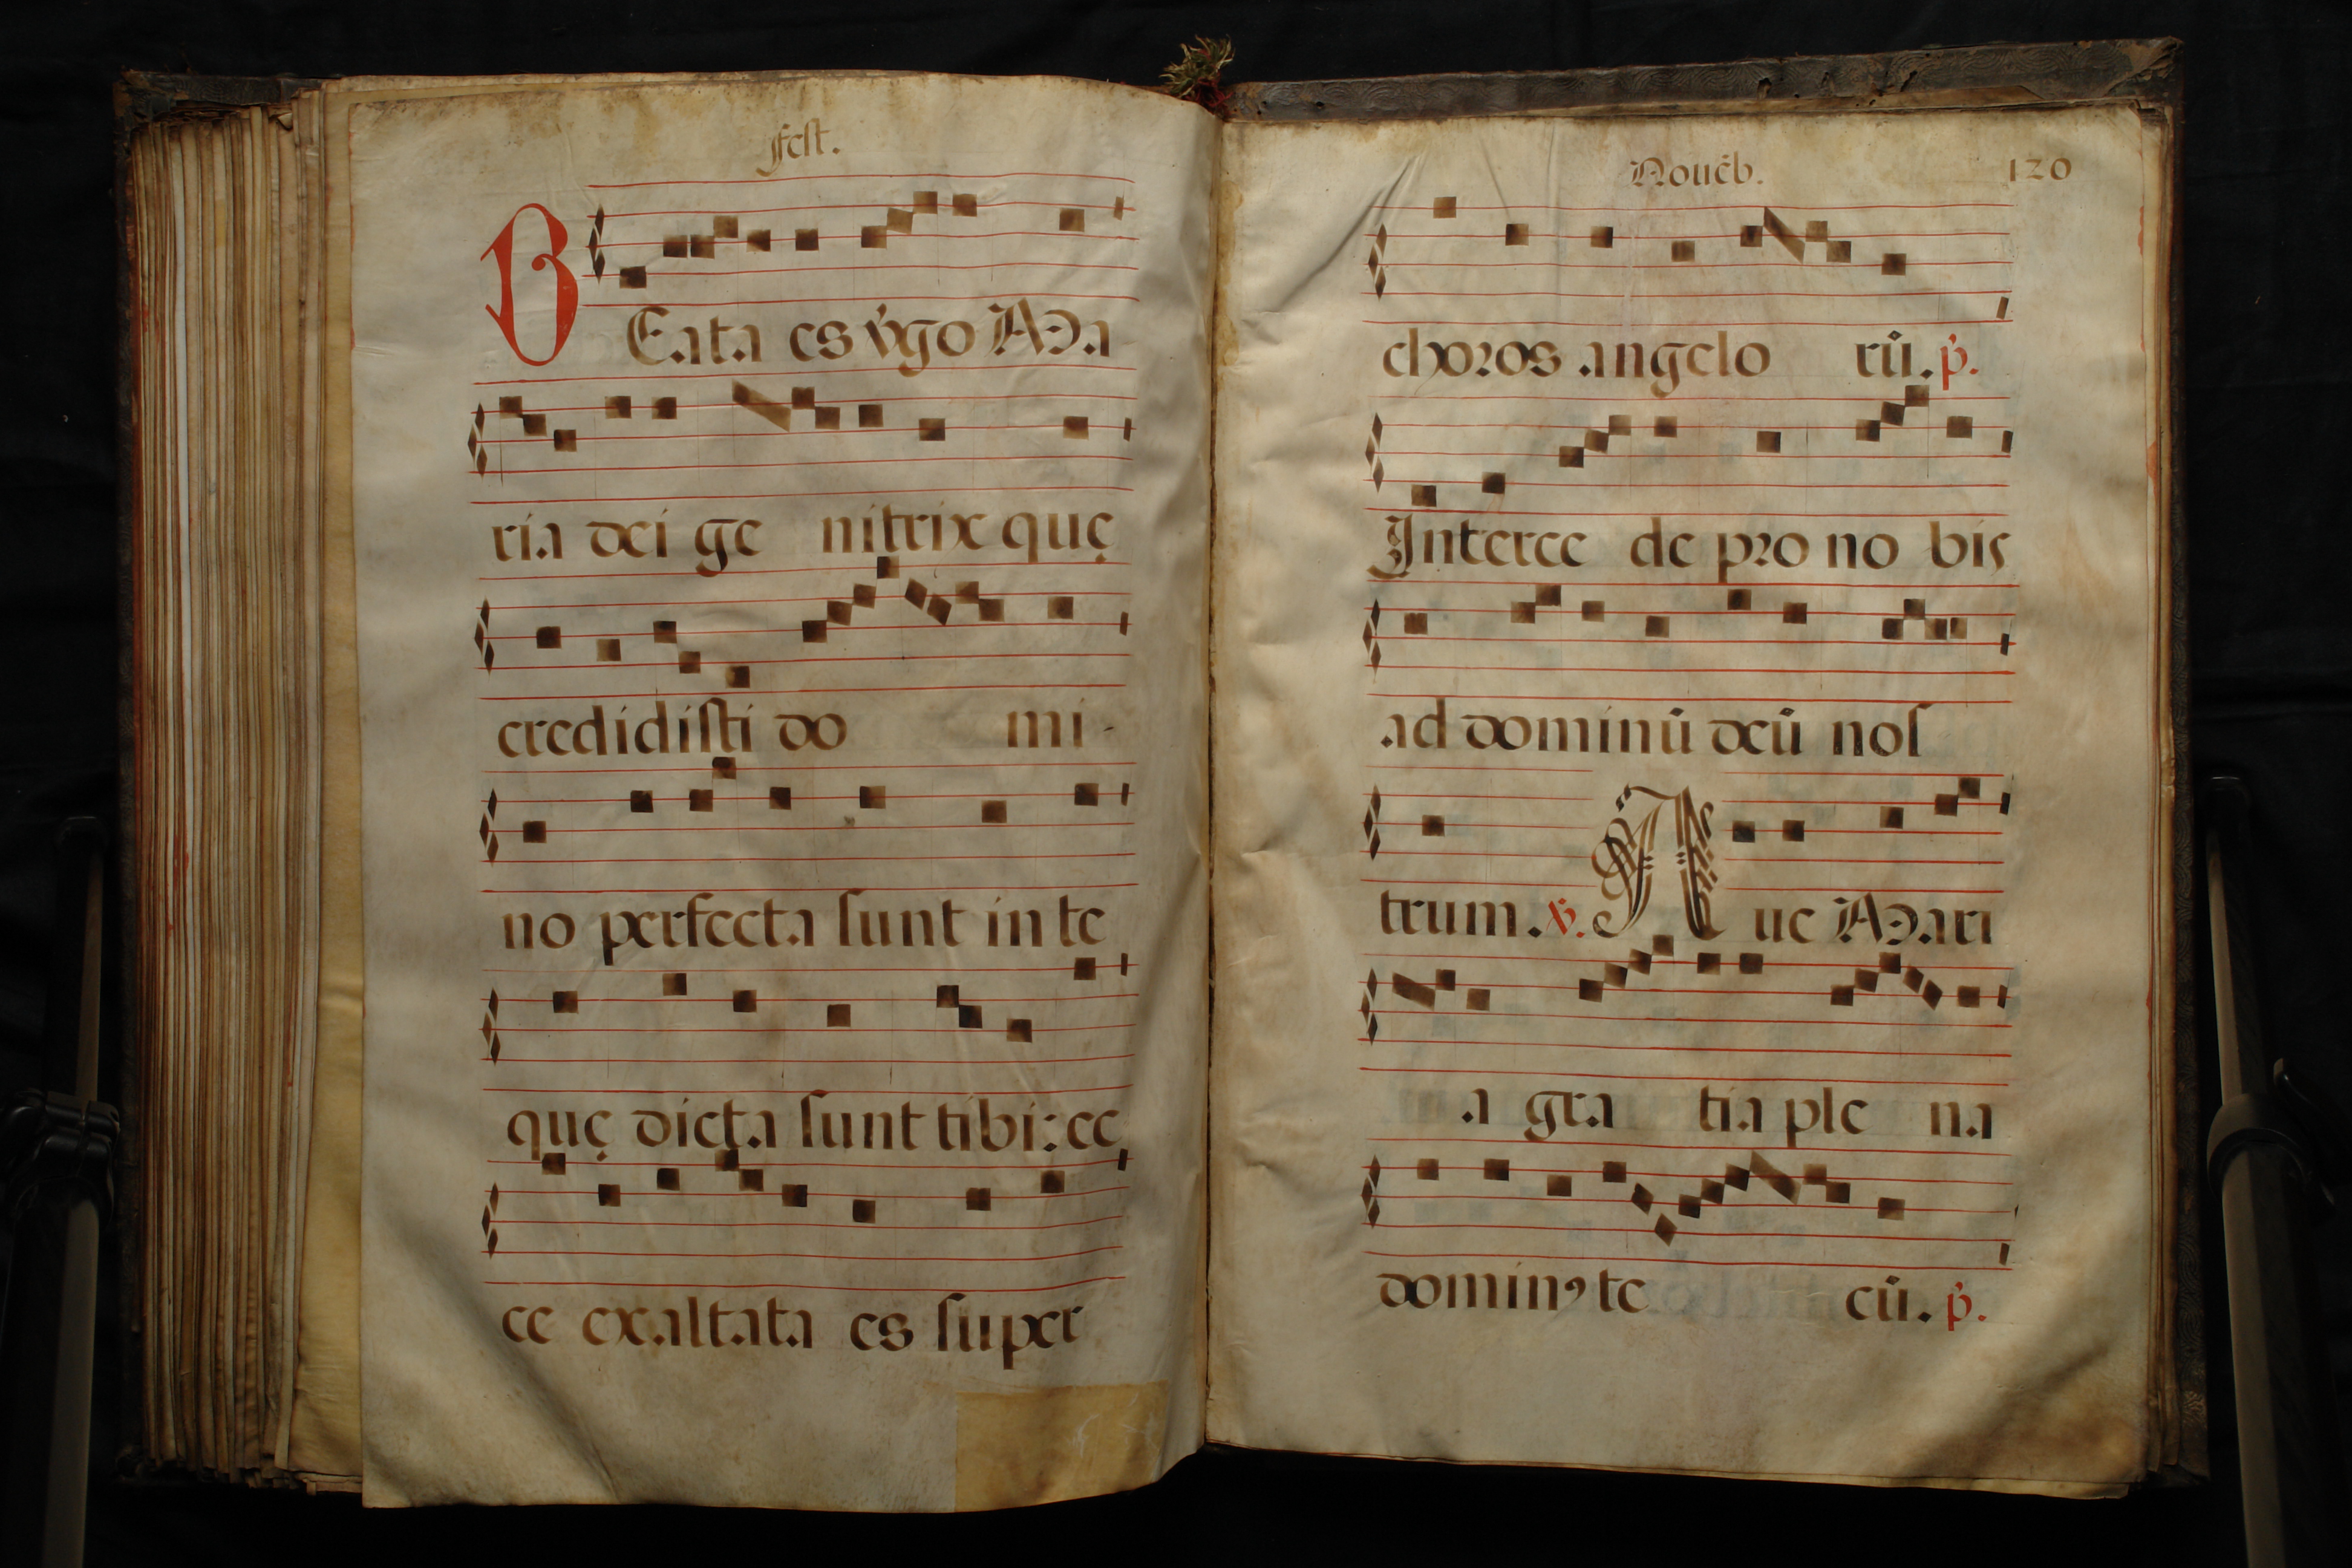 fest.
BEata es v̾go Ma
ria dei ge nitrix quę
credidisti do mi-
no perfecta sunt in te
quę dicta sunt tibi: ec
ce exaltata es super
Nouēb. 120
choros angelo rū. p̾.
Interce de pro no bis
ad dominū deū nos
trum. ℣. Aue Mari
a gra tia ple na
domin⁹ te cū. p̾.